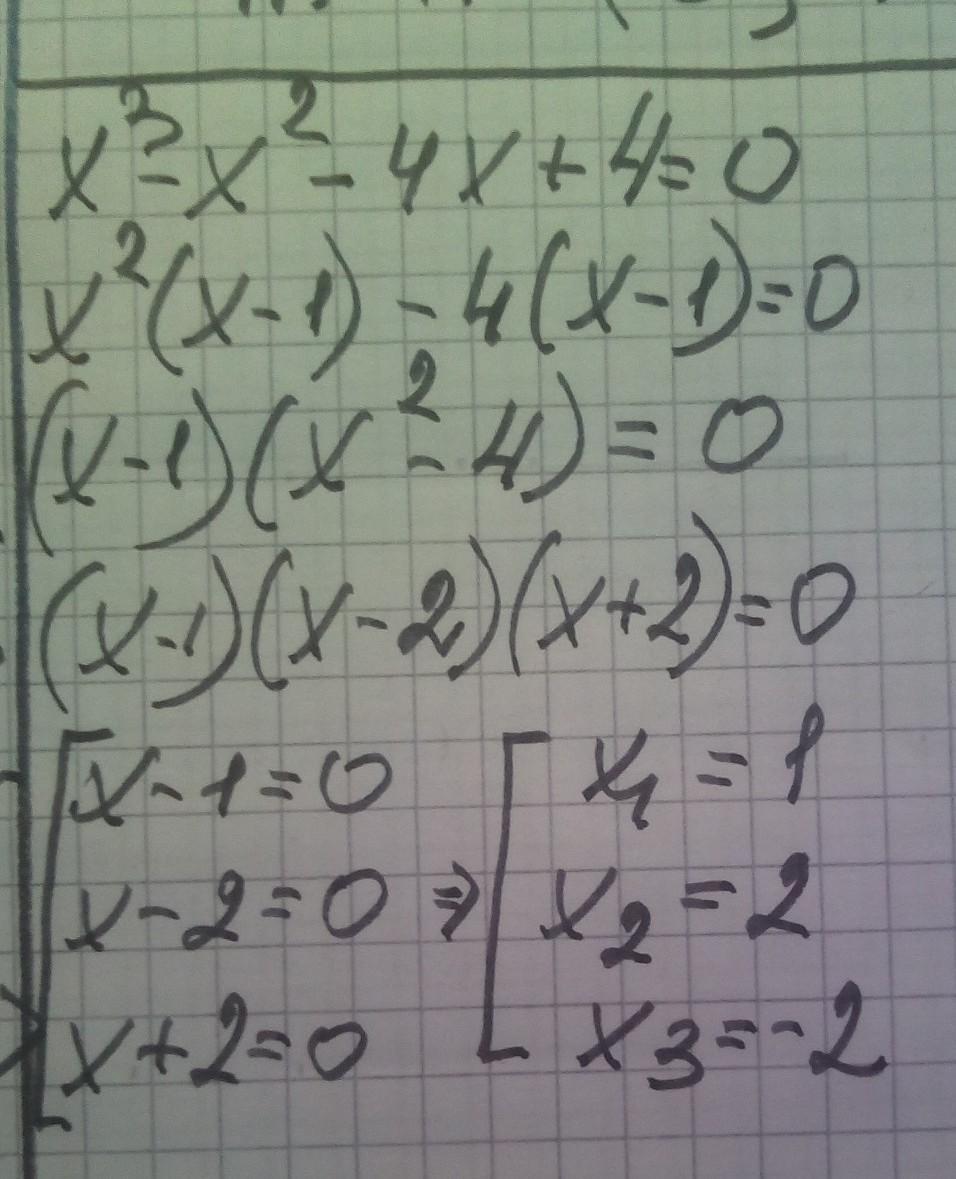 x³-x²-4x+4=0
x²(x-1)-4(x-1)=0
(x-1)(x²-4)=0
(x-1)(x-2)(x+2)=0
[x-1=0 [x₁=1
x-2=0 ⇒ x₂=2
x+2=0 x₃=-2